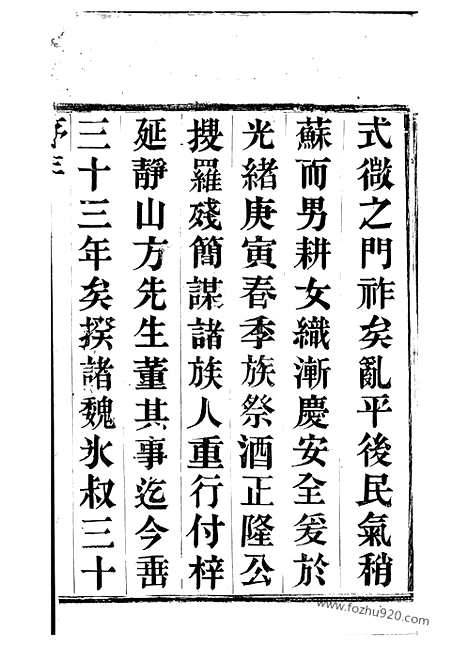 式微之門祚矣亂平後民氣稍
蘇而男耕女織漸慶安全爰於
光緒庚寅春季族祭酒正隆公
搜羅殘簡謀諸族人重行付梓
延靜山方先生董其事迄今垂
三十三年矣揆諸魏氷叔三十
序三
www.fozhu920.com